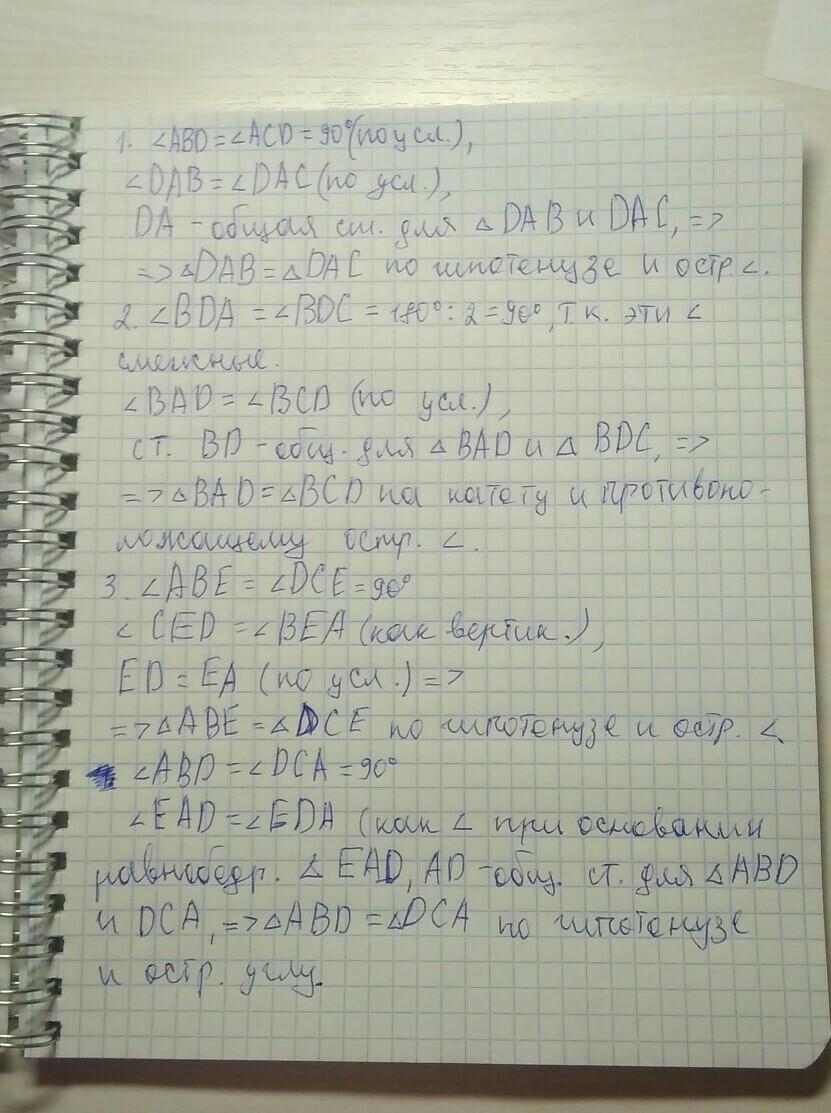 1. ∠ABD=∠ACD=90°(по усл.),
∠DAB=∠DAC(по усл.),
DA-общая ст. для △DAB и DAC, =>
=>△DAB=△DAC по гипотенузе и остр ∠.
2. ∠BDA=∠BDC=180°:2=90°, т.к. эти ∠
смежные.
∠BAD=∠BCD (по усл.),
ст. BD-общ. для △BAD и △BDC, =>
=>△BAD=△BCD по катету и противопо-
ложащему остр. ∠.
3. ∠ABE=∠DCE=90°
∠CED=∠BEA (как вертик.),
ED=EA (по усл.)=>
=>△ABE=△DCE по гипотенузе и остр. ∠.
∠ABD=∠DCA=90°
∠EAD=∠EDA (как ∠ при основании
равнобедр. △EAD, AD-общ. ст. для △ABD
и DCA, =>△ABD=△DCA по гипотенузе
и остр. углу.